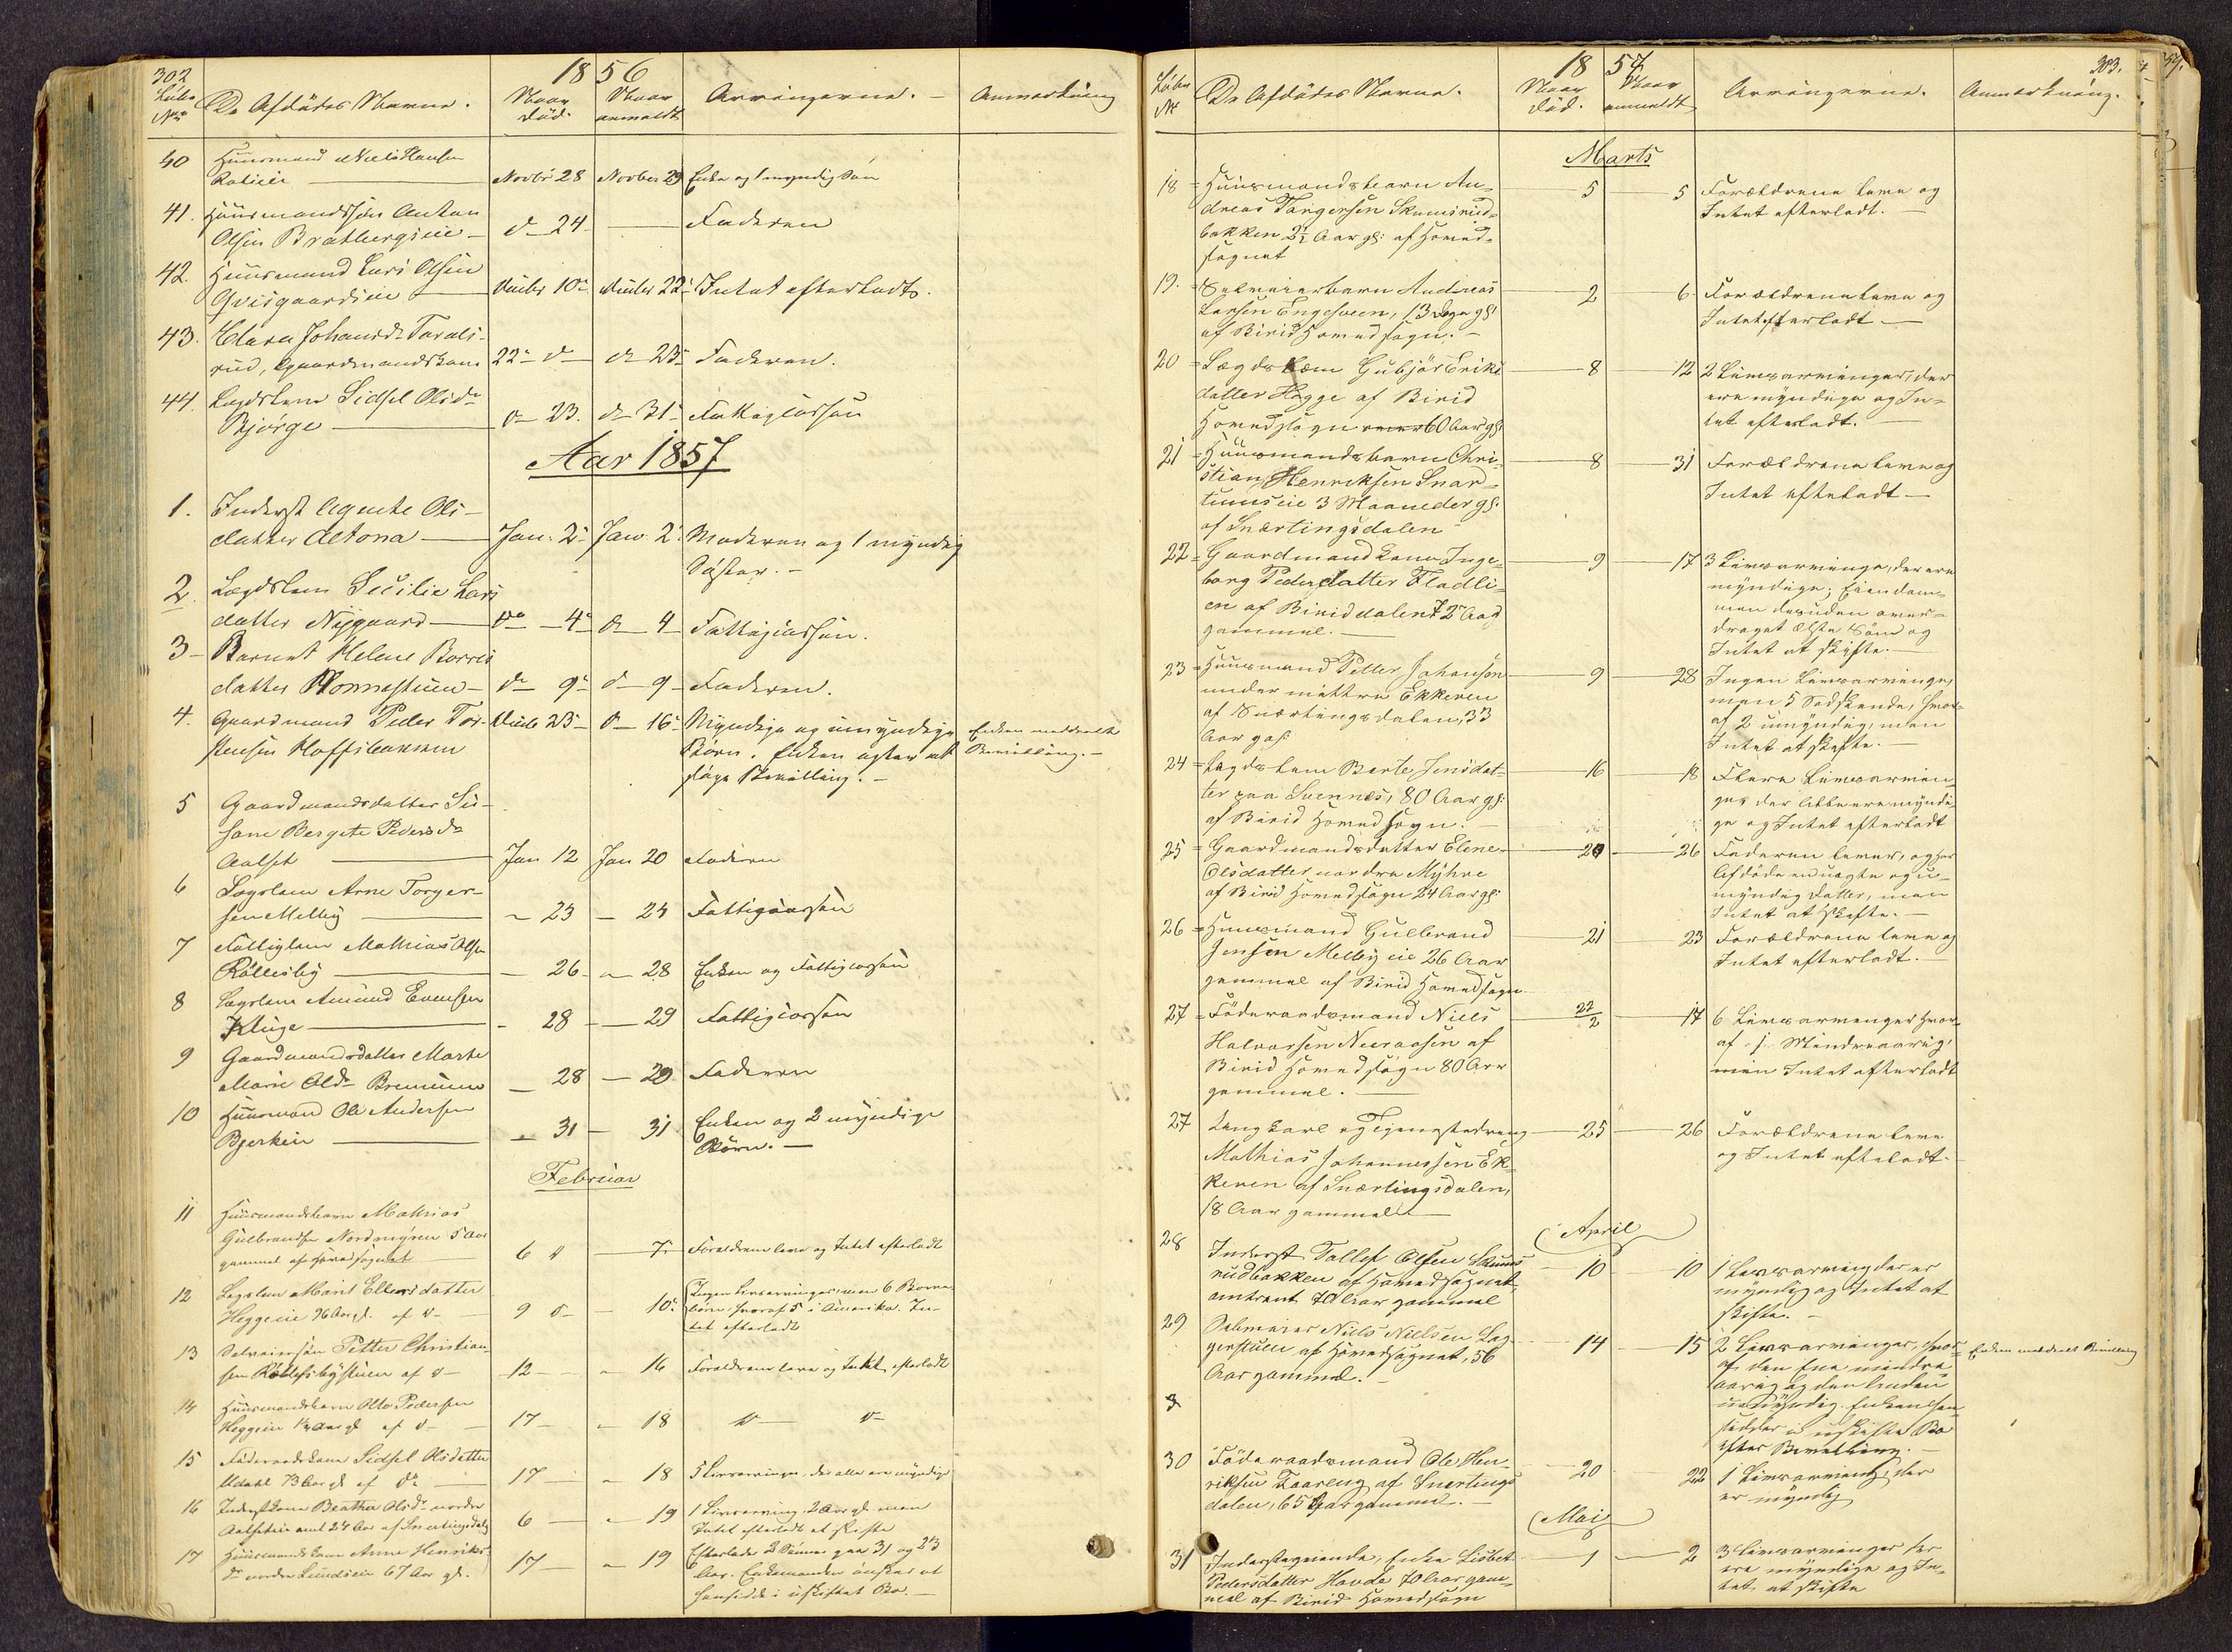 302
1856
Løbe No De Afdødes Navne. Naar død. Naar anmeldt Arvingerne. Anmærkning
40 Huusmand Niels Hansen Novbr 28 Novber 29 Enke og 1 myndig Søn
41. Huusmandssøn Anton
Olsen Bratbergseie d- 24 Faderen
42. Huusmand Lars Olsen
Qvisgaardseie 10de 22de Intet efterladt.
43. Clara Johansd- Farals-
rud, Gaardmandskone 22de d- d- 23de Faderen.
44. Lægdslem Sidsel Olsdr
Bjørge d- 23. d- 31- Fattigcassen
Aar 1857
1. Inderst Agnethe Ols-
datter Alstona Jan. 2de Jan. 2de Moderen og 1 myndig
Søster.
2. Lægdslem Secilie Lars
datter Nygaard Do 4de d- 4 Fattigcassen.
3 Barnet Helene Borres
datter d- 9de d- 9 Faderen.
4. Gaardmand Peder Tor-
stensen Hoffsbakken 25 d- 16de Myndige og umyndige
Børn. Enken agter at
søge Bevilling. Enken meddeelt
Bevilling.
5 Gaardmandsdatter Su-
sane Bergete Pedersdr
Aalset Jan 12 Jan 20 Faderen
6 Lægslem Arne Torger-
sen Melby 23 24 Fattigcassen
7 Fattiglem Mathias Olsen
Røllesby 26 28 Enken og Fattigcassen
8 Lægslem Amund Evensen
Kluge 28 29 Fattigcassen
9 Gaardmandsdatter Marthe
Marie Olsdr 28 29 Faderen
10 Huusmand Ole Andersen
Bjerkeie 31 31 Enken og 2 myndige
Børn.
Februar
11 Huusmandsbarn Mathias
Gulbrandsen Nordmyren 5 Aar
gammel af Hovedsognet 6 7 Forældrene leve og Intet efterladt
12 Lægslem Marit Ellersdatter
Heggeeie 96 Aar gl. af d- 9 10 Ingen Livsarvinger, men 6 Børne-
børn hvoraf 5 i Amerika. In-
tet efterladt
13 Selveiersøn Petter Christian-
sen Røllesbystuen af d- 12 16 Forældrene leve og Intet efterladt
14 Huusmandsbarn Otto Pedersen
Heggeeie 1½ Aar gl. af d- 17 18 d- d-
15 Føderaadskone Sidsel Olsdatter
Udahl 73 Aar gl. af d- 17 18 5 Livsarvinger, der alle ere myndige
16 Inderstkone Beatha Olsdr nordre
Aalseteie 24 Aar af Snertingsdalen 6 19 1 Livsarving 2 Aar gl. men
Intet efterladt at skifte
17 Huusmandskone Anne Henriks-
dr nordre Lundseie 67 Aar gl. 17 19 Efterlader 2 Sønner paa 31 og 23
Aar. Enkemanden ønsker at
hensidde i uskiftet Bo.
303.
1857
Løbe No De Afdødes Navne. Naar død. Naar anmeldt Arvingerne. Anmærkning.
Marts
18 Huusmandsbarn An-
dreas Torgersen Skumsrud-
bakken 2½ Aar gl: af Hoved-
sognet 5 5 Forældrene leve og
Intet efterladt.
19. Selveierbarn Andreas
Larsen Engesveen, 13 Dage gl:
af Birid Hovedsogn. 2 6 Forældrene leve og
Intet efterladt
20 Lægdslem Gubjør Eriks
datter Hagge af Birid
Hovedsogn 60 Aar gl: 8 12 2 Livsarvinger, der
ere myndige og In-
tet efterladt.
21 Huusmandsbarn Chri-
stian Henriksen Snar-
tumseie 3 Maaneder gl:
af Snertingsdalen 8 31 Forældrene leve og
Intet efterladt
22 Gaardmandkone Inge-
borg Pedersdatter Fladli-
en af Biriddalen 72 Aar
gammel. 9 17 3 Livsarvinge, der ere
myndige; Eiendom-
men desuden over-
draget ælste Søn og
Intet at skifte.
23 Huusmand Petter Johansen
under mittre Ekkeren
af Snertingsdalen, 33
Aar gal: 9 28 Ingen Livsarvinge,
men 5 Sødskende, hvor-
af 2 umyndig, men
Intet at skifte.
24 Lægdslem Berte Jensdat-
ter paa Svennes, 80 Aar gl:
af Birid Hovedsogn. 16 18 Flere Livsarvin-
ger der alle ere myndi-
ge og Intet efterladt
25 Gaardmandsdatter Elene
Olsdatter nordre Myhre
af Birid Hovedsogn 24 Aar gl: 20 26 Faderen lever, og har
Afdøde en uægte og u-
myndig Datter, men
Intet at skifte.
26 Huusmand Gulbrand
Jensen Melbyeie 26 Aar
gammel af Birid Hovedsogn 21 23 Forældrene leve og
Intet efterladt.
27 Føderaadsmand Niels
Halvorsen Neeraasen af
Birid Hovedsogn 80 Aar
gammel. 22/2 17 6 Livsarvenger hvor-
af 1 Mindreaarig,
men Intet efterladt
27 Ungkarl og Tjenestedreng
Mathias Johannessen Ek-
keren af Snertingsdalen,
18 Aar gammel 25 26 Forældrene leve
og Intet efterladt.
April
28 Inderst Tollef Olsen Skums-
rudbakken af Hovedsognet,
omtrent 70 Aar gammel 10 10 1 Livsarving der er
myndig og Intet at
skifte.
29 Selveier Niels Nielsen Lag-
gerstuen af Hovedsognet, 56
Aar gammel. 14 15 2 Livsarvinger, hvor-
af den Ene mindre-
aarig og den Anden
umyndig. Enken hen-
sidder i uskiftet Bo
efter Bevilling. Enken meddeelt Bevilling
3
30 Føderaadsmand Ole Hen-
riksen Taareng af Snertings
dalen, 65 Aar gammel. 20 22 1 Livsarving, der
er myndig
Mai
31 Enke Lisbet
Pedersdatter Hovde 70 Aar gam-
mel af Birid Hovedsogn 1 2 3 Livsarvinger der
ere myndige og In-
tet at skifte